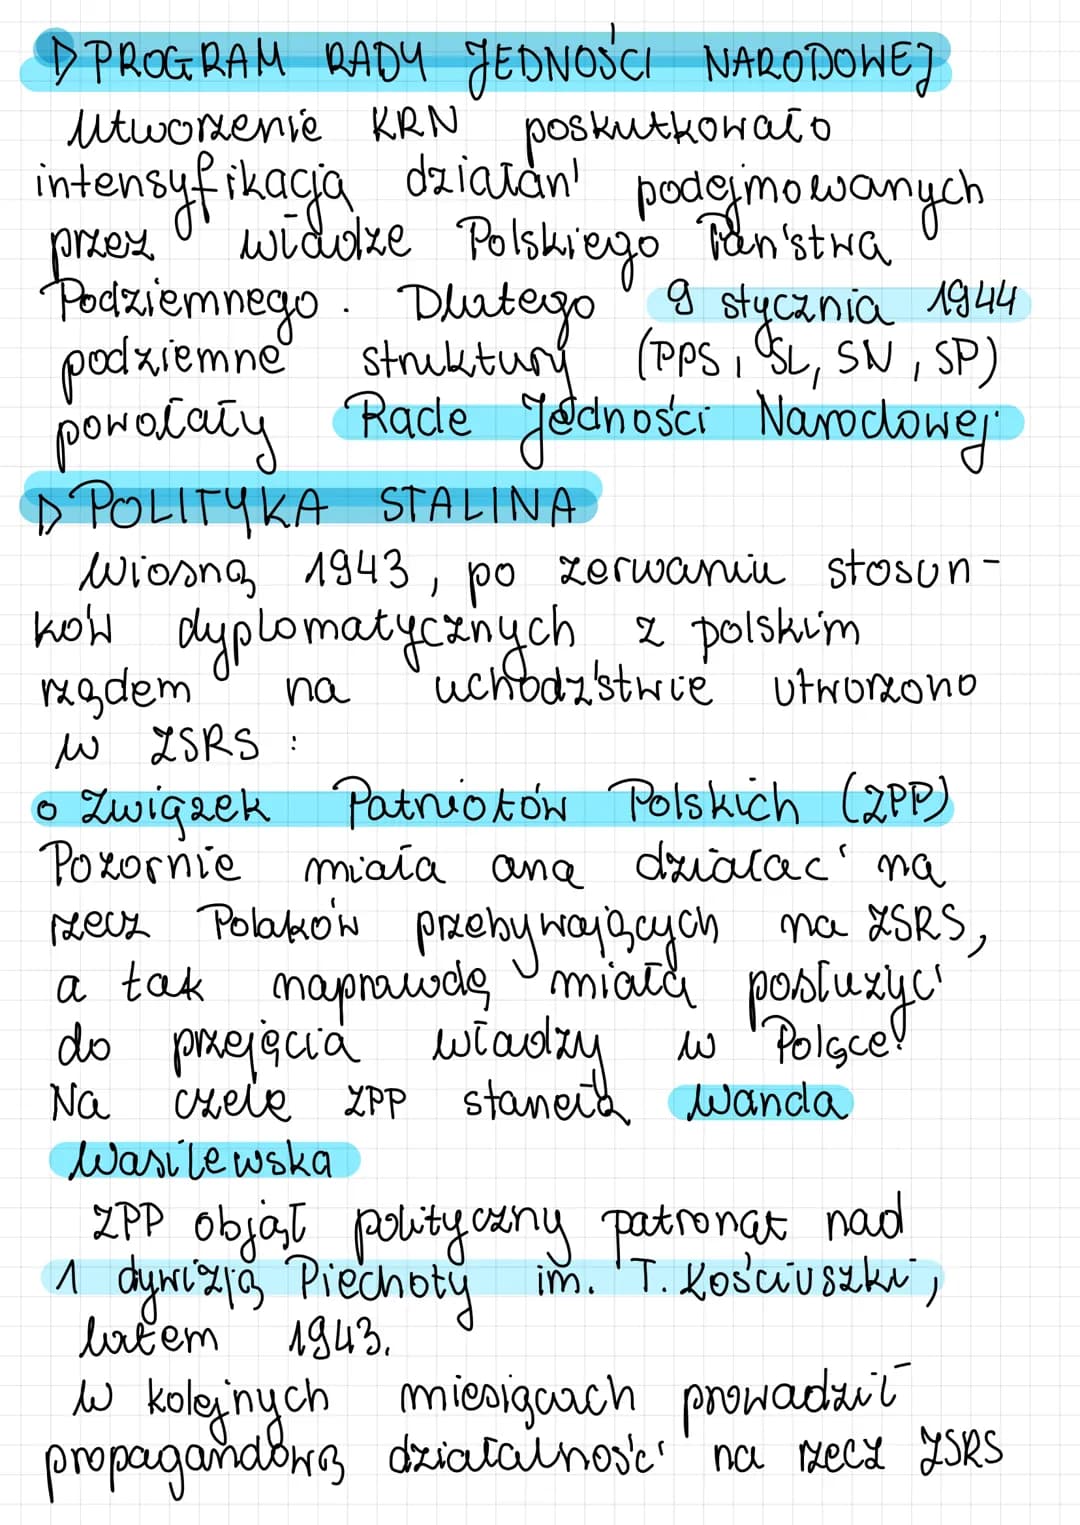 ▷ PROGRAM RADY JEDNOŚCI NARODOWEJ
Utworzenie KRN poskutkowało
intensyfikacją działań podejmowanych
przez władze Polskiego Państwa
Podziemnego. Dlatego 9 stycznia 1944
podziemne struktury (PPS, SL, SN, SP)
powołały Radę Jedności Narodowej
▷ POLITYKA STALINA
Wiosną 1943, po zerwaniu stosun-
ków dyplomatycznych z polskim
rządem na uchodźstwie utworzono
w ZSRS :
o Związek Patriotów Polskich (ZPP)
Pozornie miała ona działać na
rzecz Polaków przebywających na ZSRS,
a tak naprawdę miała posłużyć
do przejęcia władzy w Polsce!
Na czele ZPP stanęła Wanda
Wasilewska
ZPP objął polityczny patronat nad
1 dywizją Piechoty im. T. Kościuszki,
latem 1943.
W kolejnych miesiącach prowadził
propagandową działalność na rzecz ZSRS